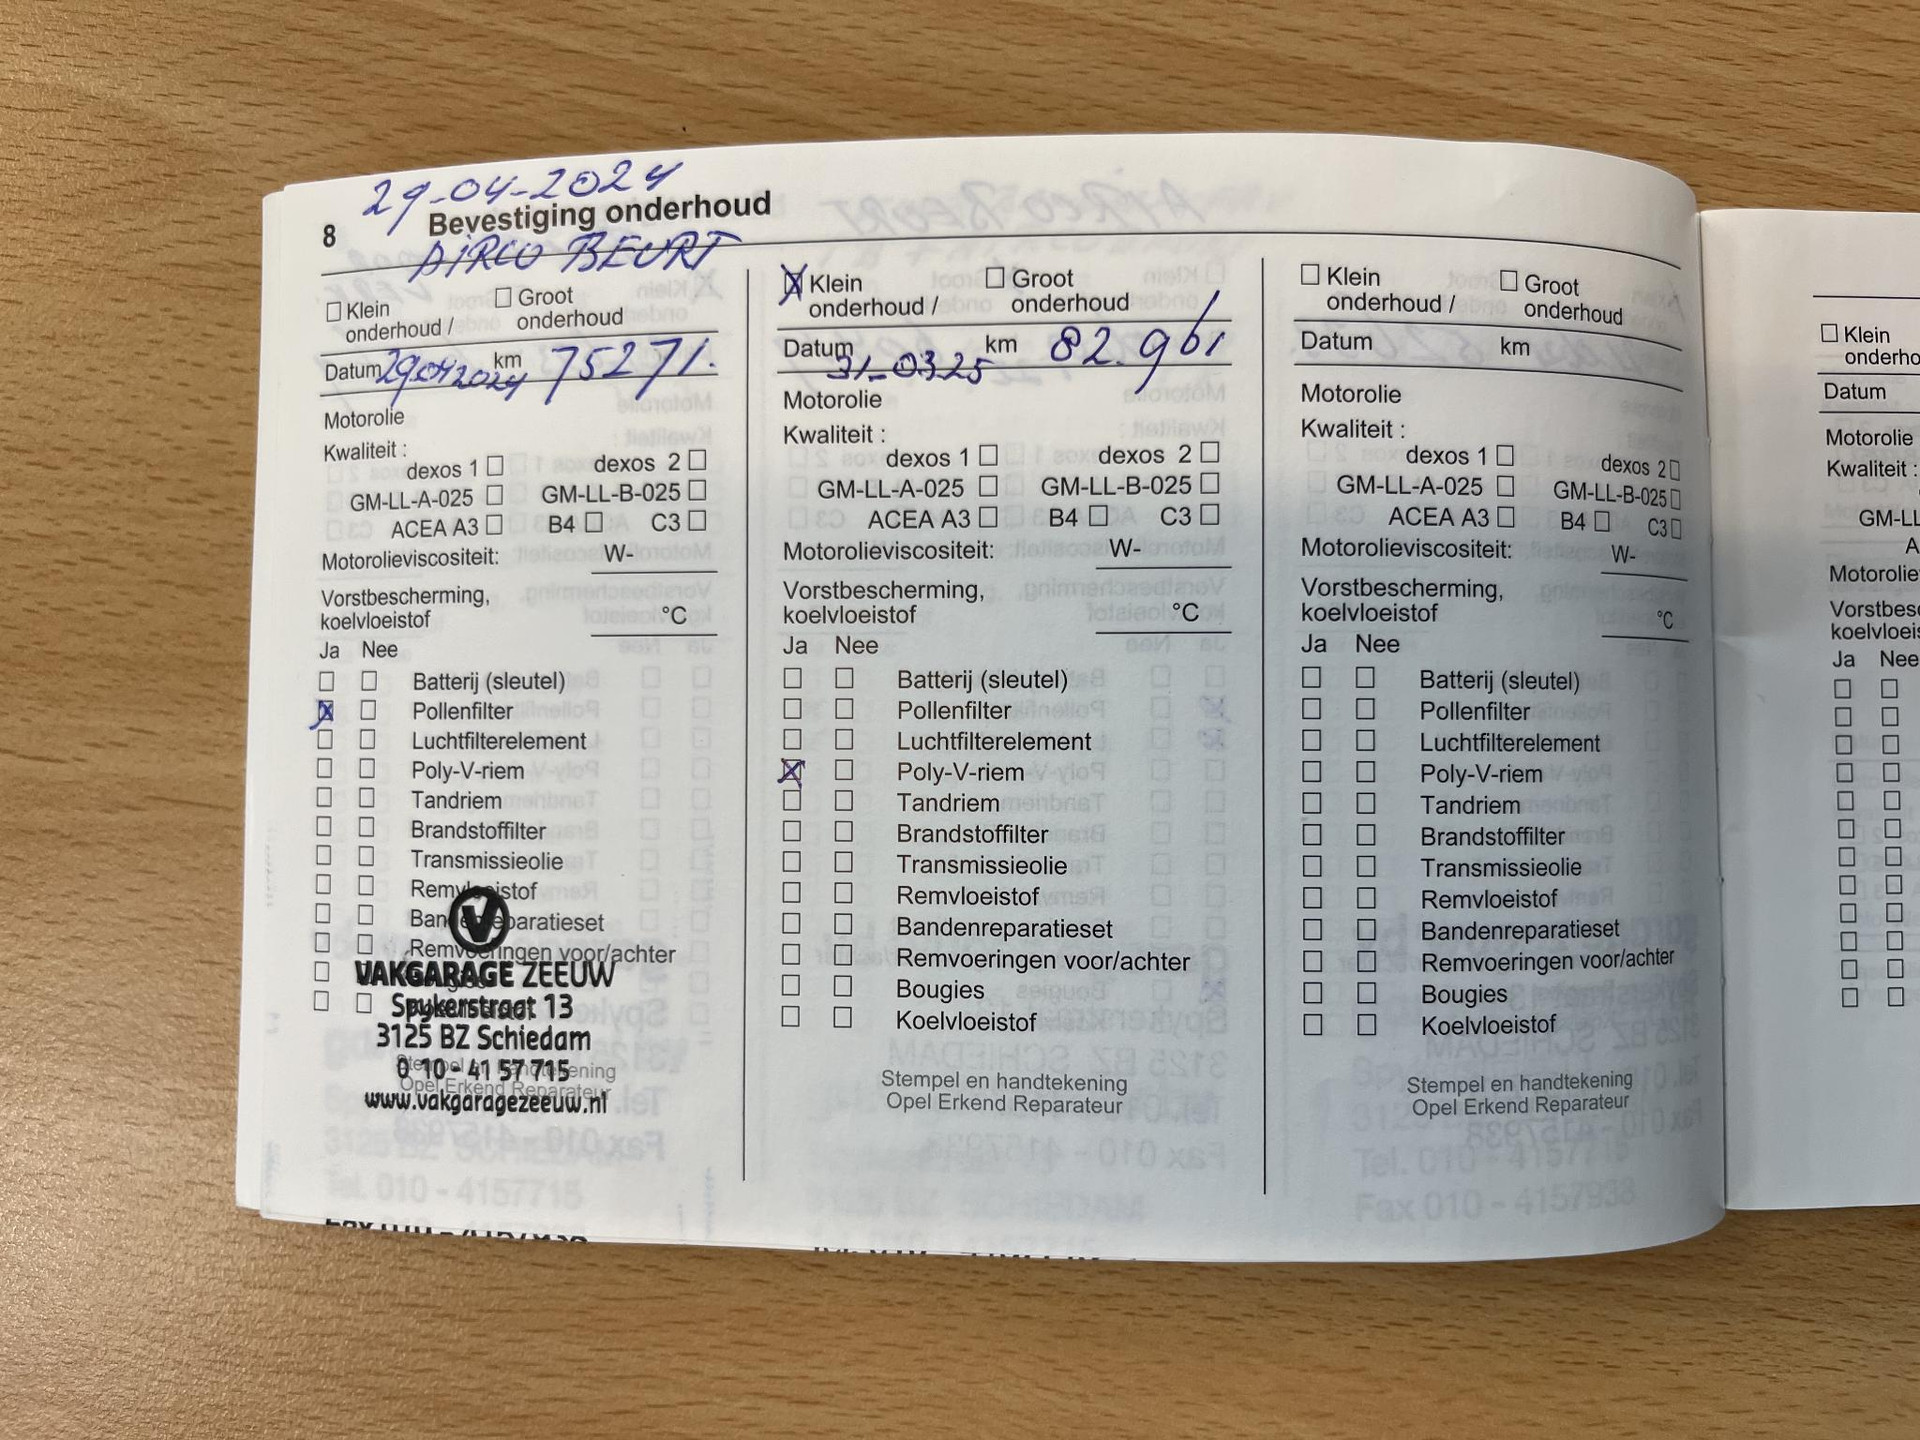 29-04-2024
8 Bevestiging onderhoud
AIRCO BEURT
☐ Klein onderhoud / ☐ Groot onderhoud
Datum 29.04 2024 km 75271.
Motorolie
Kwaliteit :
dexos 1 ☐ dexos 2 ☐
GM-LL-A-025 ☐ GM-LL-B-025 ☐
ACEA A3 ☐ B4 ☐ C3 ☐
Motorolieviscositeit: W-
Vorstbescherming,
koelvloeistof °C
Ja Nee
☐ ☐ Batterij (sleutel)
☒ ☐ Pollenfilter
☐ ☐ Luchtfilterelement
☐ ☐ Poly-V-riem
☐ ☐ Tandriem
☐ ☐ Brandstoffilter
☐ ☐ Transmissieolie
☐ ☐ Remvloeistof
☐ ☐ Bandenreparatieset
☐ ☐ Remvoeringen voor/achter
VAKGARAGE ZEEUW
Spykerstraat 13
3125 BZ Schiedam
0 10 - 41 57 715
www.vakgaragezeeuw.nl
Stempel en handtekening
Opel Erkend Reparateur
☒ Klein onderhoud / ☐ Groot onderhoud
Datum 31-0325 km 82.961
Motorolie
Kwaliteit :
dexos 1 ☐ dexos 2 ☐
GM-LL-A-025 ☐ GM-LL-B-025 ☐
ACEA A3 ☐ B4 ☐ C3 ☐
Motorolieviscositeit: W-
Vorstbescherming,
koelvloeistof °C
Ja Nee
☐ ☐ Batterij (sleutel)
☐ ☐ Pollenfilter
☐ ☐ Luchtfilterelement
☒ ☐ Poly-V-riem
☐ ☐ Tandriem
☐ ☐ Brandstoffilter
☐ ☐ Transmissieolie
☐ ☐ Remvloeistof
☐ ☐ Bandenreparatieset
☐ ☐ Remvoeringen voor/achter
☐ ☐ Bougies
☐ ☐ Koelvloeistof
Stempel en handtekening
Opel Erkend Reparateur
☐ Klein onderhoud / ☐ Groot onderhoud
Datum km
Motorolie
Kwaliteit :
dexos 1 ☐ dexos 2 ☐
GM-LL-A-025 ☐ GM-LL-B-025 ☐
ACEA A3 ☐ B4 ☐ C3 ☐
Motorolieviscositeit: W-
Vorstbescherming,
koelvloeistof °C
Ja Nee
☐ ☐ Batterij (sleutel)
☐ ☐ Pollenfilter
☐ ☐ Luchtfilterelement
☐ ☐ Poly-V-riem
☐ ☐ Tandriem
☐ ☐ Brandstoffilter
☐ ☐ Transmissieolie
☐ ☐ Remvloeistof
☐ ☐ Bandenreparatieset
☐ ☐ Remvoeringen voor/achter
☐ ☐ Bougies
☐ ☐ Koelvloeistof
Stempel en handtekening
Opel Erkend Reparateur
☐ Klein
Datum
Motorolie
Kwaliteit :
Ja Nee